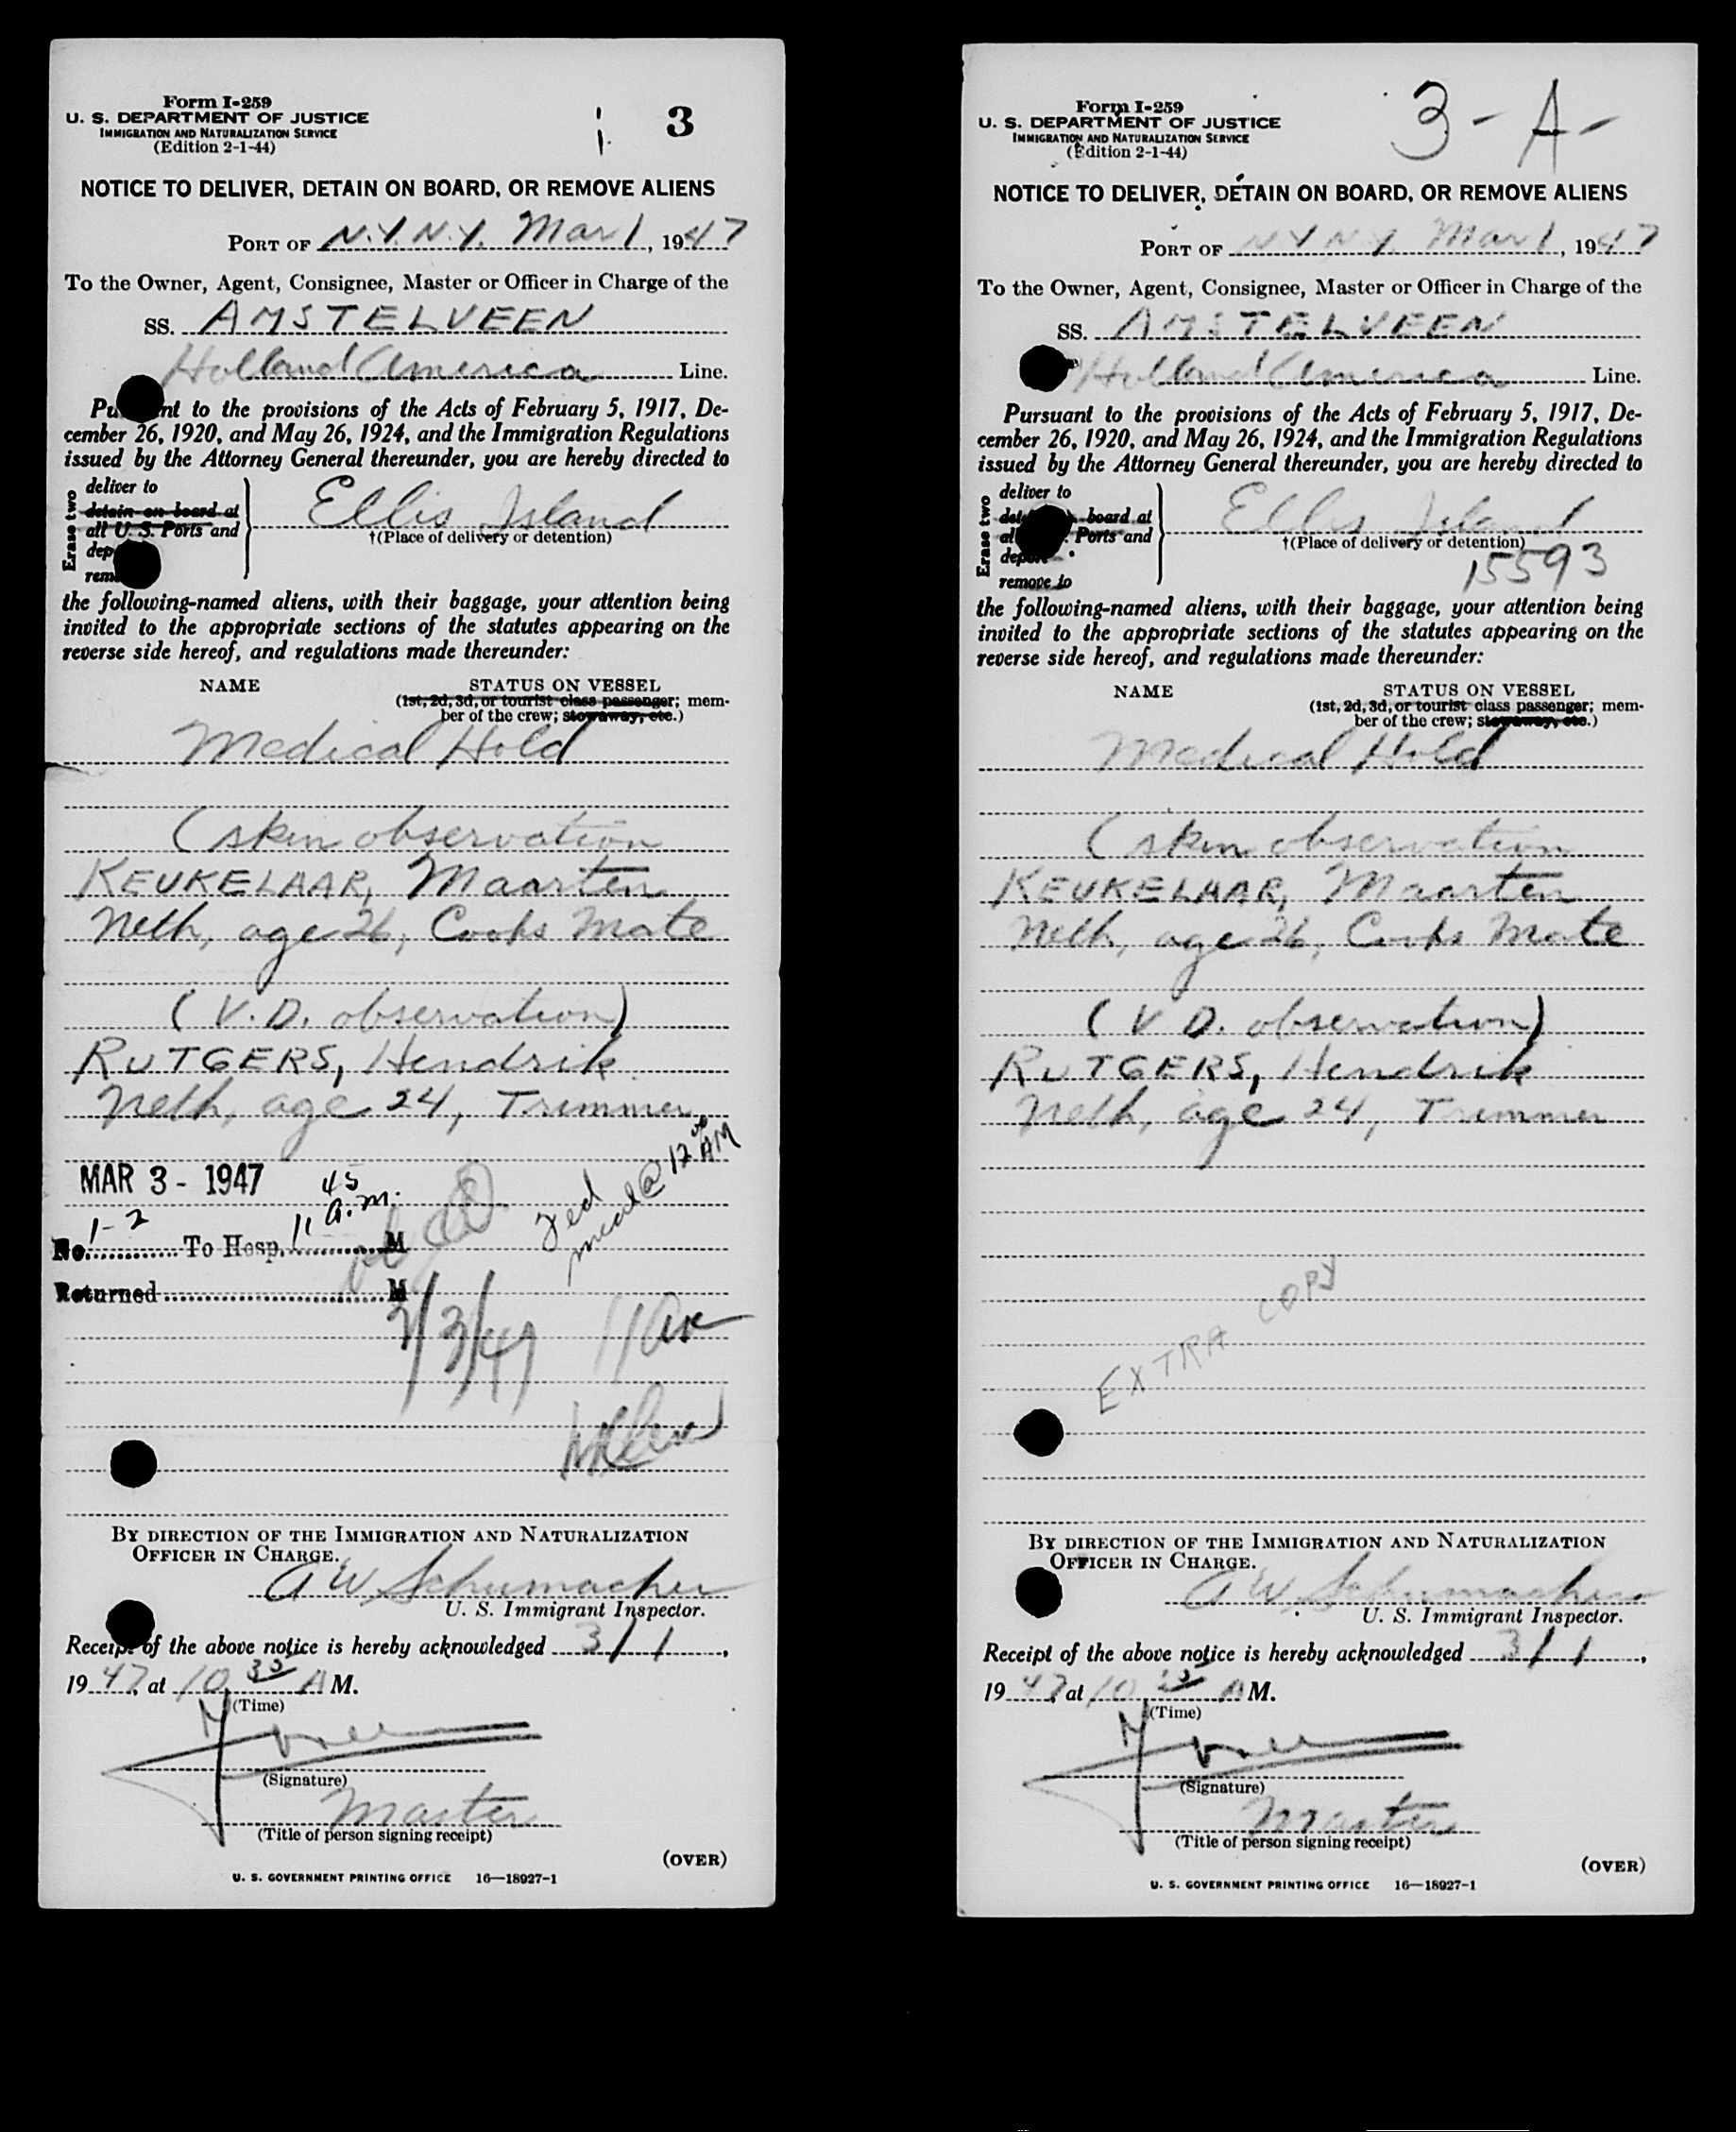 Form I-259
U. S. DEPARTMENT OF JUSTICE
IMMIGRATION AND NATURALIZATION SERVICE
(Edition 2-1-44)
3
NOTICE TO DELIVER, DETAIN ON BOARD, OR REMOVE ALIENS
PORT OF N.Y. N.Y. Mar 1, 1947
To the Owner, Agent, Consignee, Master or Officer in Charge of the
SS. AMSTELVEEN
Holland America Line.
Pursuant to the provisions of the Acts of February 5, 1917, De-
cember 26, 1920, and May 26, 1924, and the Immigration Regulations
issued by the Attorney General thereunder, you are hereby directed to
Erase two
deliver to
detain on board at
all U. S. Ports and
dep
rem
Ellis Island
†(Place of delivery or detention)
the following-named aliens, with their baggage, your attention being
invited to the appropriate sections of the statutes appearing on the
reverse side hereof, and regulations made thereunder:
NAME STATUS ON VESSEL
(1st, 2d, 3d, or tourist class passenger; mem-
ber of the crew; stowaway, etc.)
Medical Hold
(skin observation
KEUKELAAR, Maarten
Neth, age 26, Cooks Mate
(V.D. observation)
RUTGERS, Hendrik
Neth, age 24, Trimmer
MAR 3 - 1947
No. 1-2 To Hosp. 11 45 a.m. M
Returned M
meal @ 12 00 AM
3/3/47
BY DIRECTION OF THE IMMIGRATION AND NATURALIZATION
OFFICER IN CHARGE.
A W Schumacher
U. S. Immigrant Inspector.
Receipt of the above notice is hereby acknowledged 3/1,
1947, at 10 35 A M.
(Time)
(Signature)
Master
(Title of person signing receipt)
(OVER)
U. S. GOVERNMENT PRINTING OFFICE 16—18927-1
Form I-259
U. S. DEPARTMENT OF JUSTICE
IMMIGRATION AND NATURALIZATION SERVICE
(Edition 2-1-44)
3-A-
NOTICE TO DELIVER, DETAIN ON BOARD, OR REMOVE ALIENS
PORT OF N Y N Y. Mar 1, 1947
To the Owner, Agent, Consignee, Master or Officer in Charge of the
SS. AMSTELVEEN
Holland America Line.
Pursuant to the provisions of the Acts of February 5, 1917, De-
cember 26, 1920, and May 26, 1924, and the Immigration Regulations
issued by the Attorney General thereunder, you are hereby directed to
Erase two
deliver to
det board at
al Ports and
deport
remove to
Ellis Island
†(Place of delivery or detention)
15593
the following-named aliens, with their baggage, your attention being
invited to the appropriate sections of the statutes appearing on the
reverse side hereof, and regulations made thereunder:
NAME STATUS ON VESSEL
(1st, 2d, 3d, or tourist class passenger; mem-
ber of the crew; stowaway, etc.)
Medical Hold
(skin observation
KEUKELAAR, Maarten
Neth, age 26, Cooks Mate
(V D. observation)
RUTGERS, Hendrik
Neth, age 24, Trimmer
EXTRA COPY
BY DIRECTION OF THE IMMIGRATION AND NATURALIZATION
OFFICER IN CHARGE.
A W. Schumacher
U. S. Immigrant Inspector.
Receipt of the above notice is hereby acknowledged 3/1,
1947, at 10 35 A M.
(Time)
(Signature)
Master
(Title of person signing receipt)
(OVER)
U. S. GOVERNMENT PRINTING OFFICE 16—18927-1